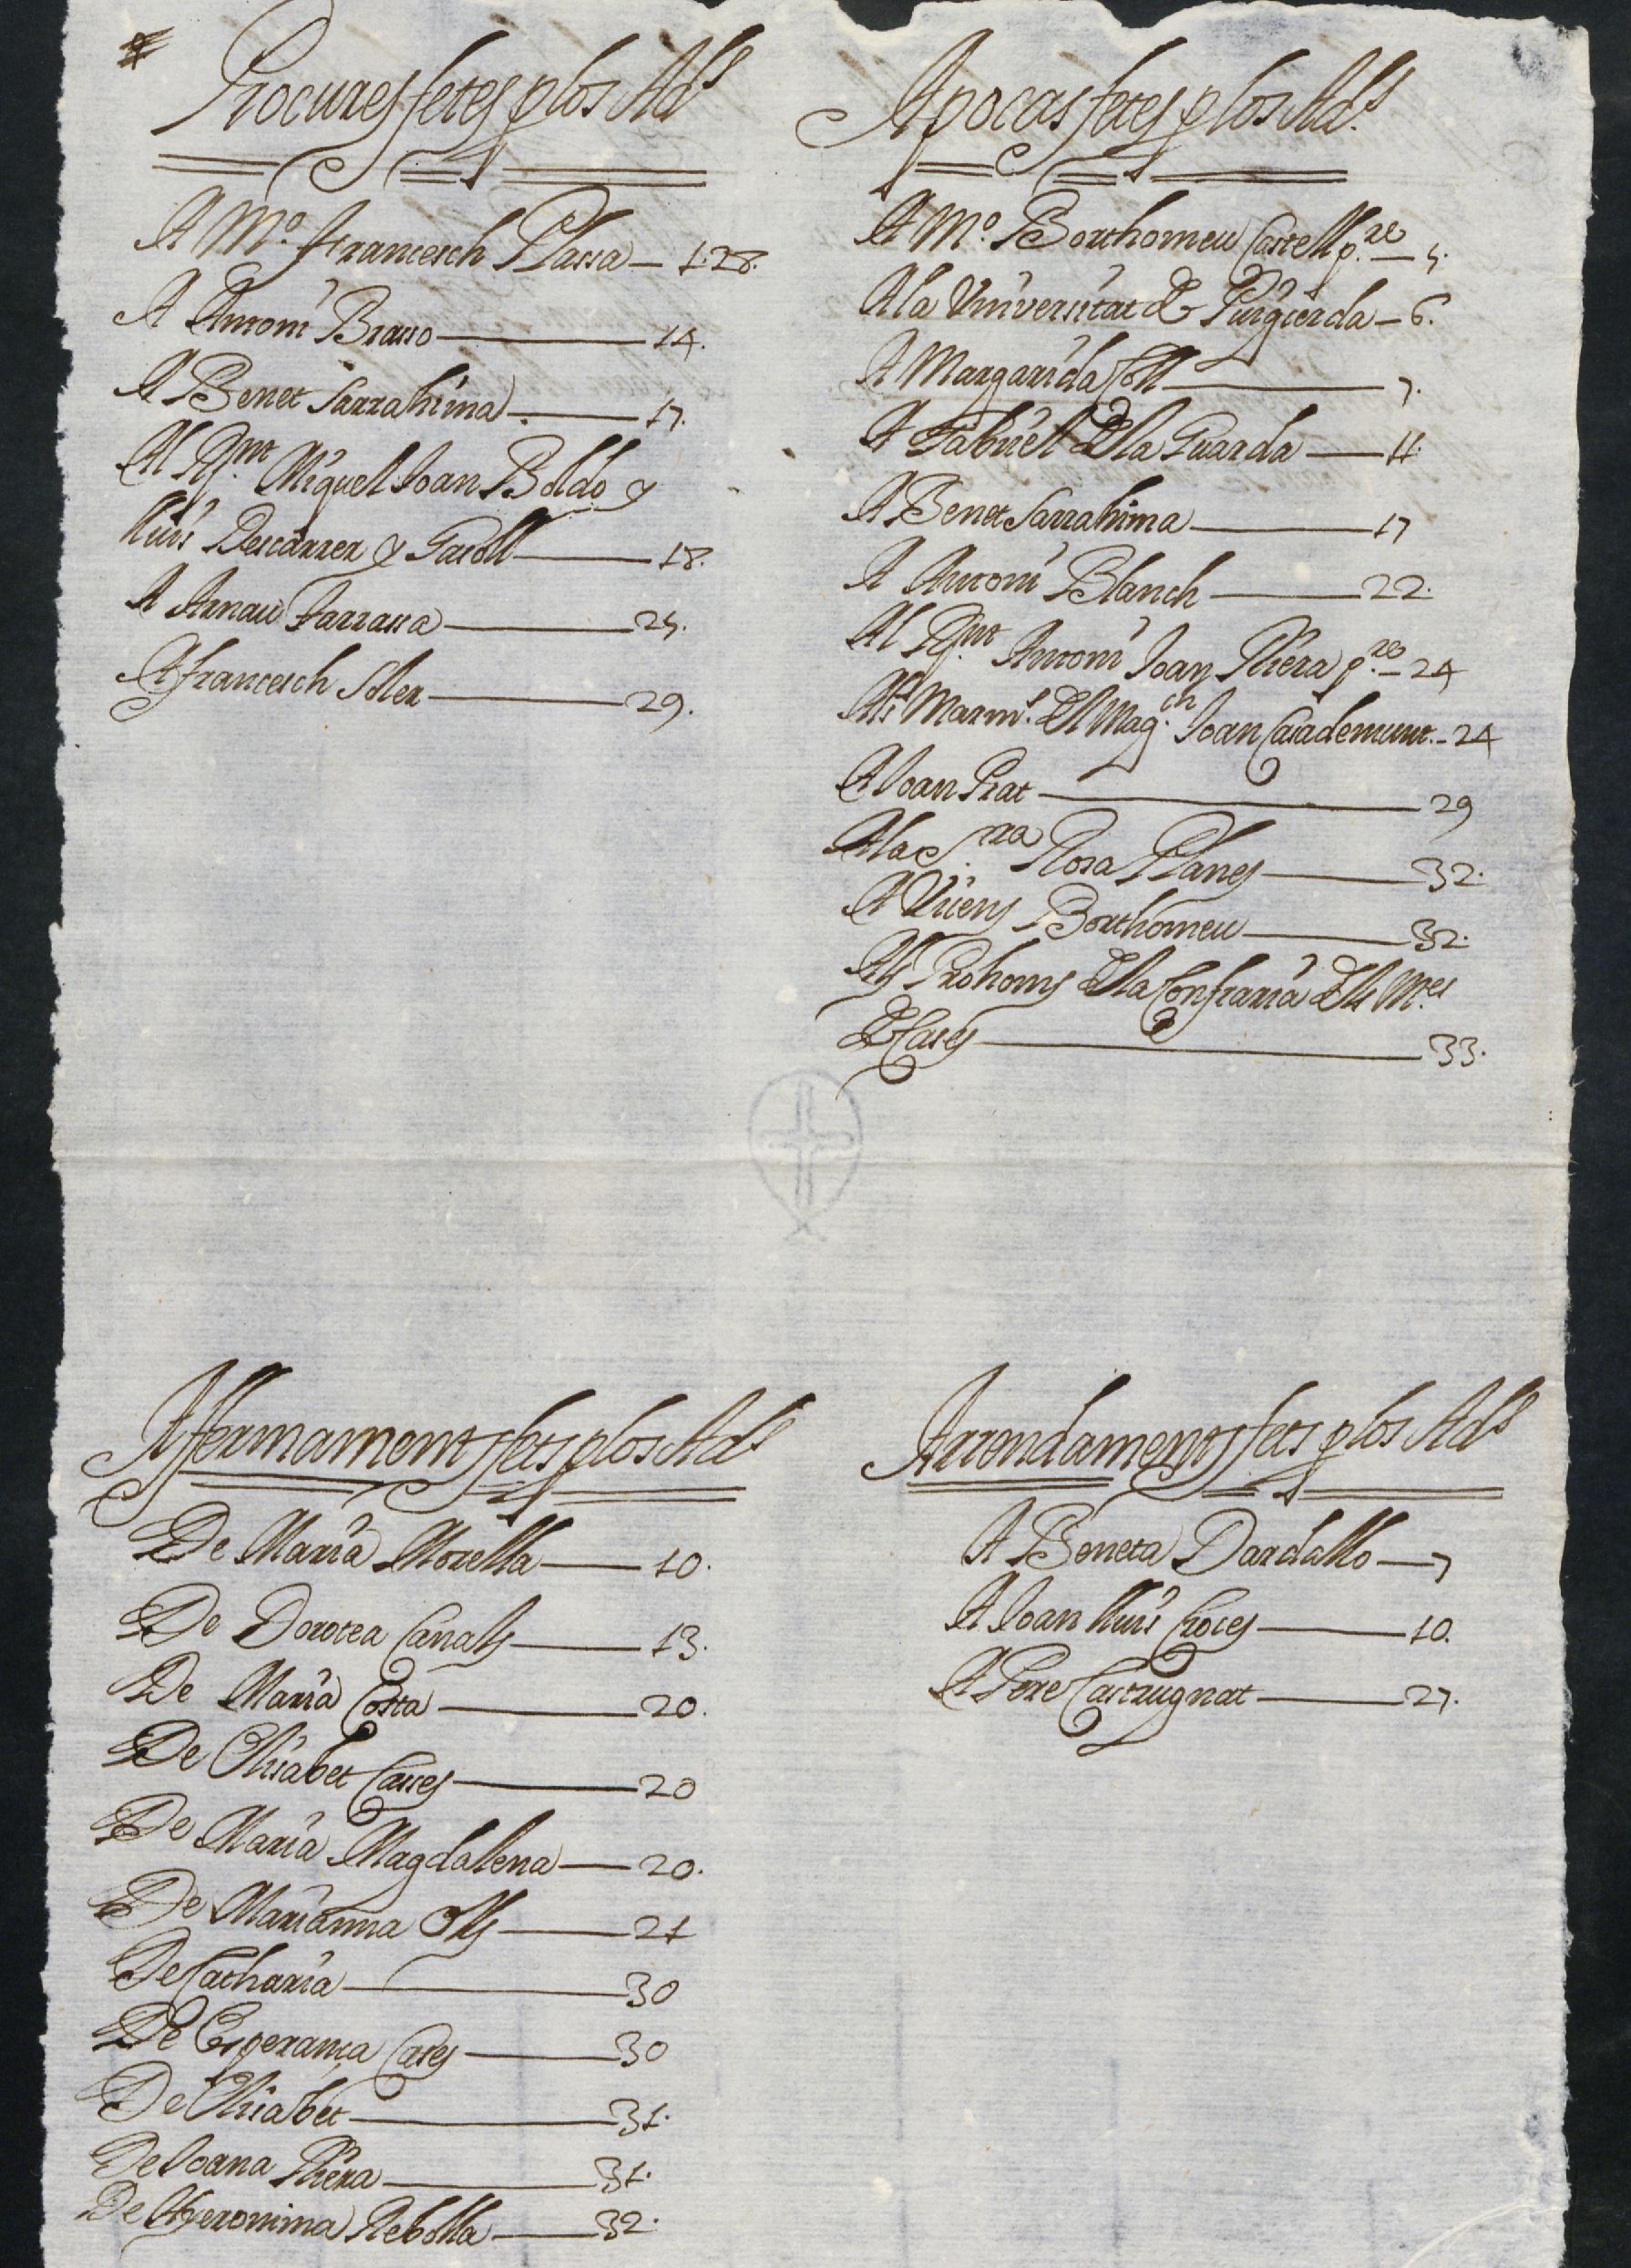 Procures fetes p los Ads
A Mº. Francesch Plassa — 1.28.
A Antoni Brasso — 14.
A Benet Sarrahima — 17.
Al Rnt. Miquel Joan Boldo y
Lluis Descarrer y Gacoll — 18.
A Arnau Farrassa — 25.
A francesch Soler — 29.
Apocas fetes p los Ads.
A Mº. Barthomeu Castell p.re — 5.
A la Universitat de Puigcerda — 6.
A Margarida Coll — 7.
A Gabriel de la Guarda — 11.
A Benet Sarrahima — 17
A Antoni Blanch — 22.
Al Rnt. Antoni Joan Riera p.re — 24
Als Marms. del Magch. Joan Casademunt. — 24
A Joan Prat — 29
A la S.ra Rosa Planes — 32.
A Vicens Barthomeu — 32.
Als Prohoms de la Confraria dels M.es
de Cases — 33.
Affermaments fets p los Ads
De Maria Morella — 10.
De Dorotea Canals — 13.
De Maria Costa — 20.
De Elisabet Casses — 20
De Maria Magdalena — 20.
De Marianna Olls — 21
De Catharia — 30
De Esperança Cases — 30
De Elisabet — 31.
De Joana Riera — 31.
De Hyeronima Rebolla — 32.
Arrendaments fets p los Ads
A Beneta Dardallo — 7
A Joan lluis Croces — 10.
A Pere Castrugnat — 27.